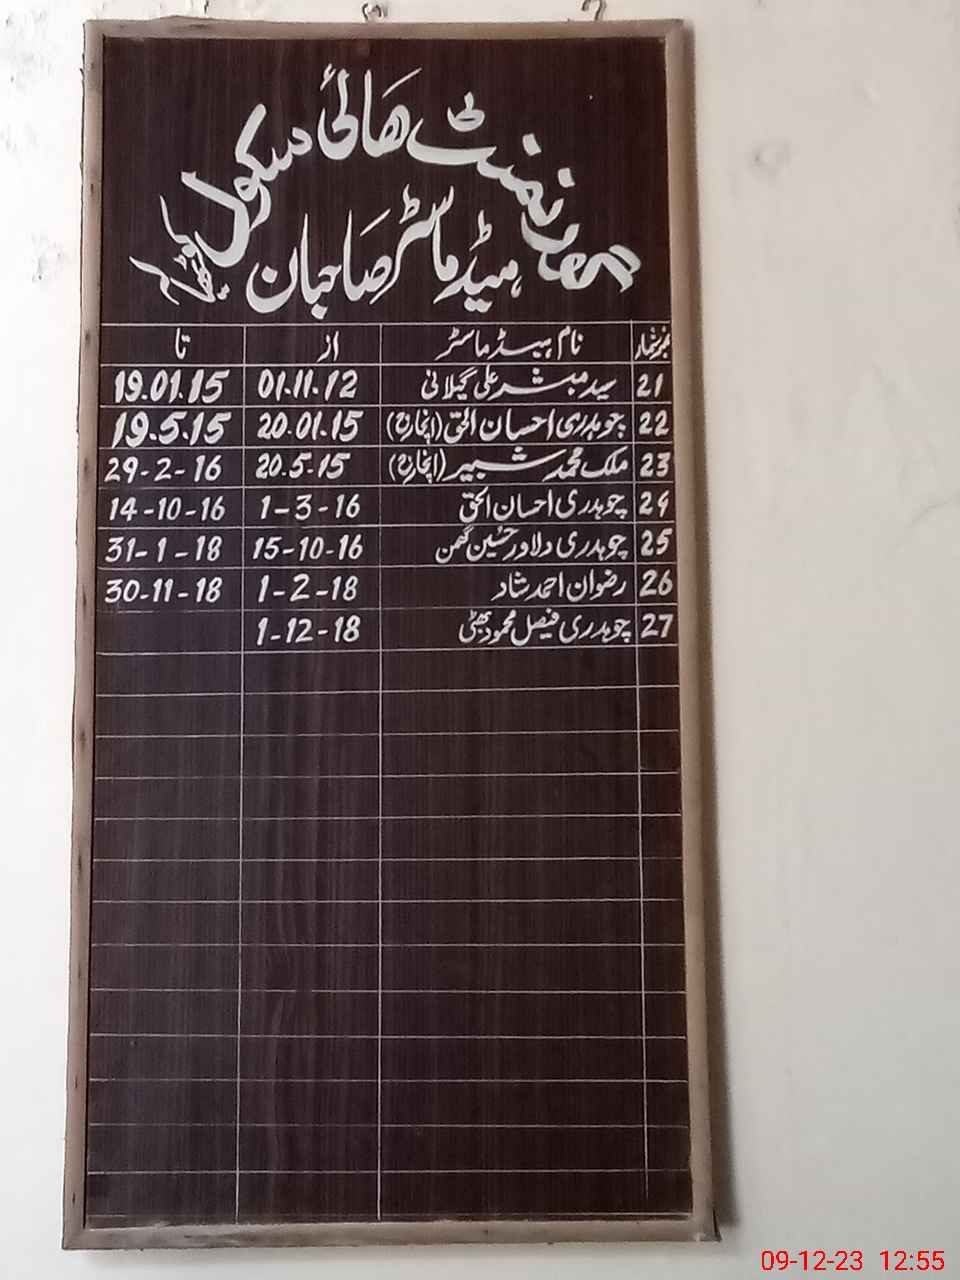 گورنمنٹ ھائی سکول
ہیڈ ماسٹر صاحبان
نمبر شمار نام ہیڈ ماسٹر از تا
21 سید مبشر علی گیلانی 01.11.12 19.01.15
22 چوہدری احسان الحق (انچارج) 20.01.15 19.5.15
23 ملک محمد شبیر (انچارج) 20.5.15 29-2-16
24 چوہدری احسان الحق 1-3-16 14-10-16
25 چوہدری دلاور حسین گھمن 15-10-16 31-1-18
26 رضوان احمد شاد 1-2-18 30-11-18
27 چوہدری فیصل محمود بھٹی 1-12-18
09-12-23 12:55